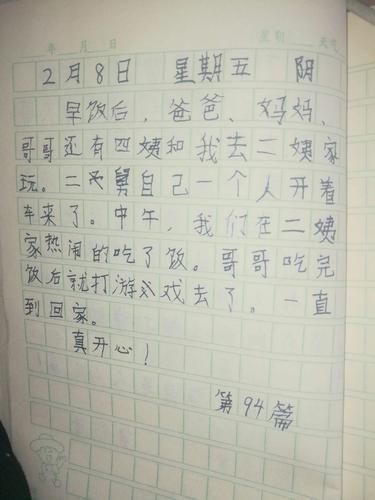 年 月 日 星期 天气
2月8日 星期五 阴
早饭后，爸爸、妈妈、
哥哥还有四姨和我去二姨家
玩。二舅自己一个人开着
车来了。中午，我们在二姨
家热闹的吃了饭。哥哥吃完
饭后就打游戏去了。一直
到回家。
真开心！
第94篇